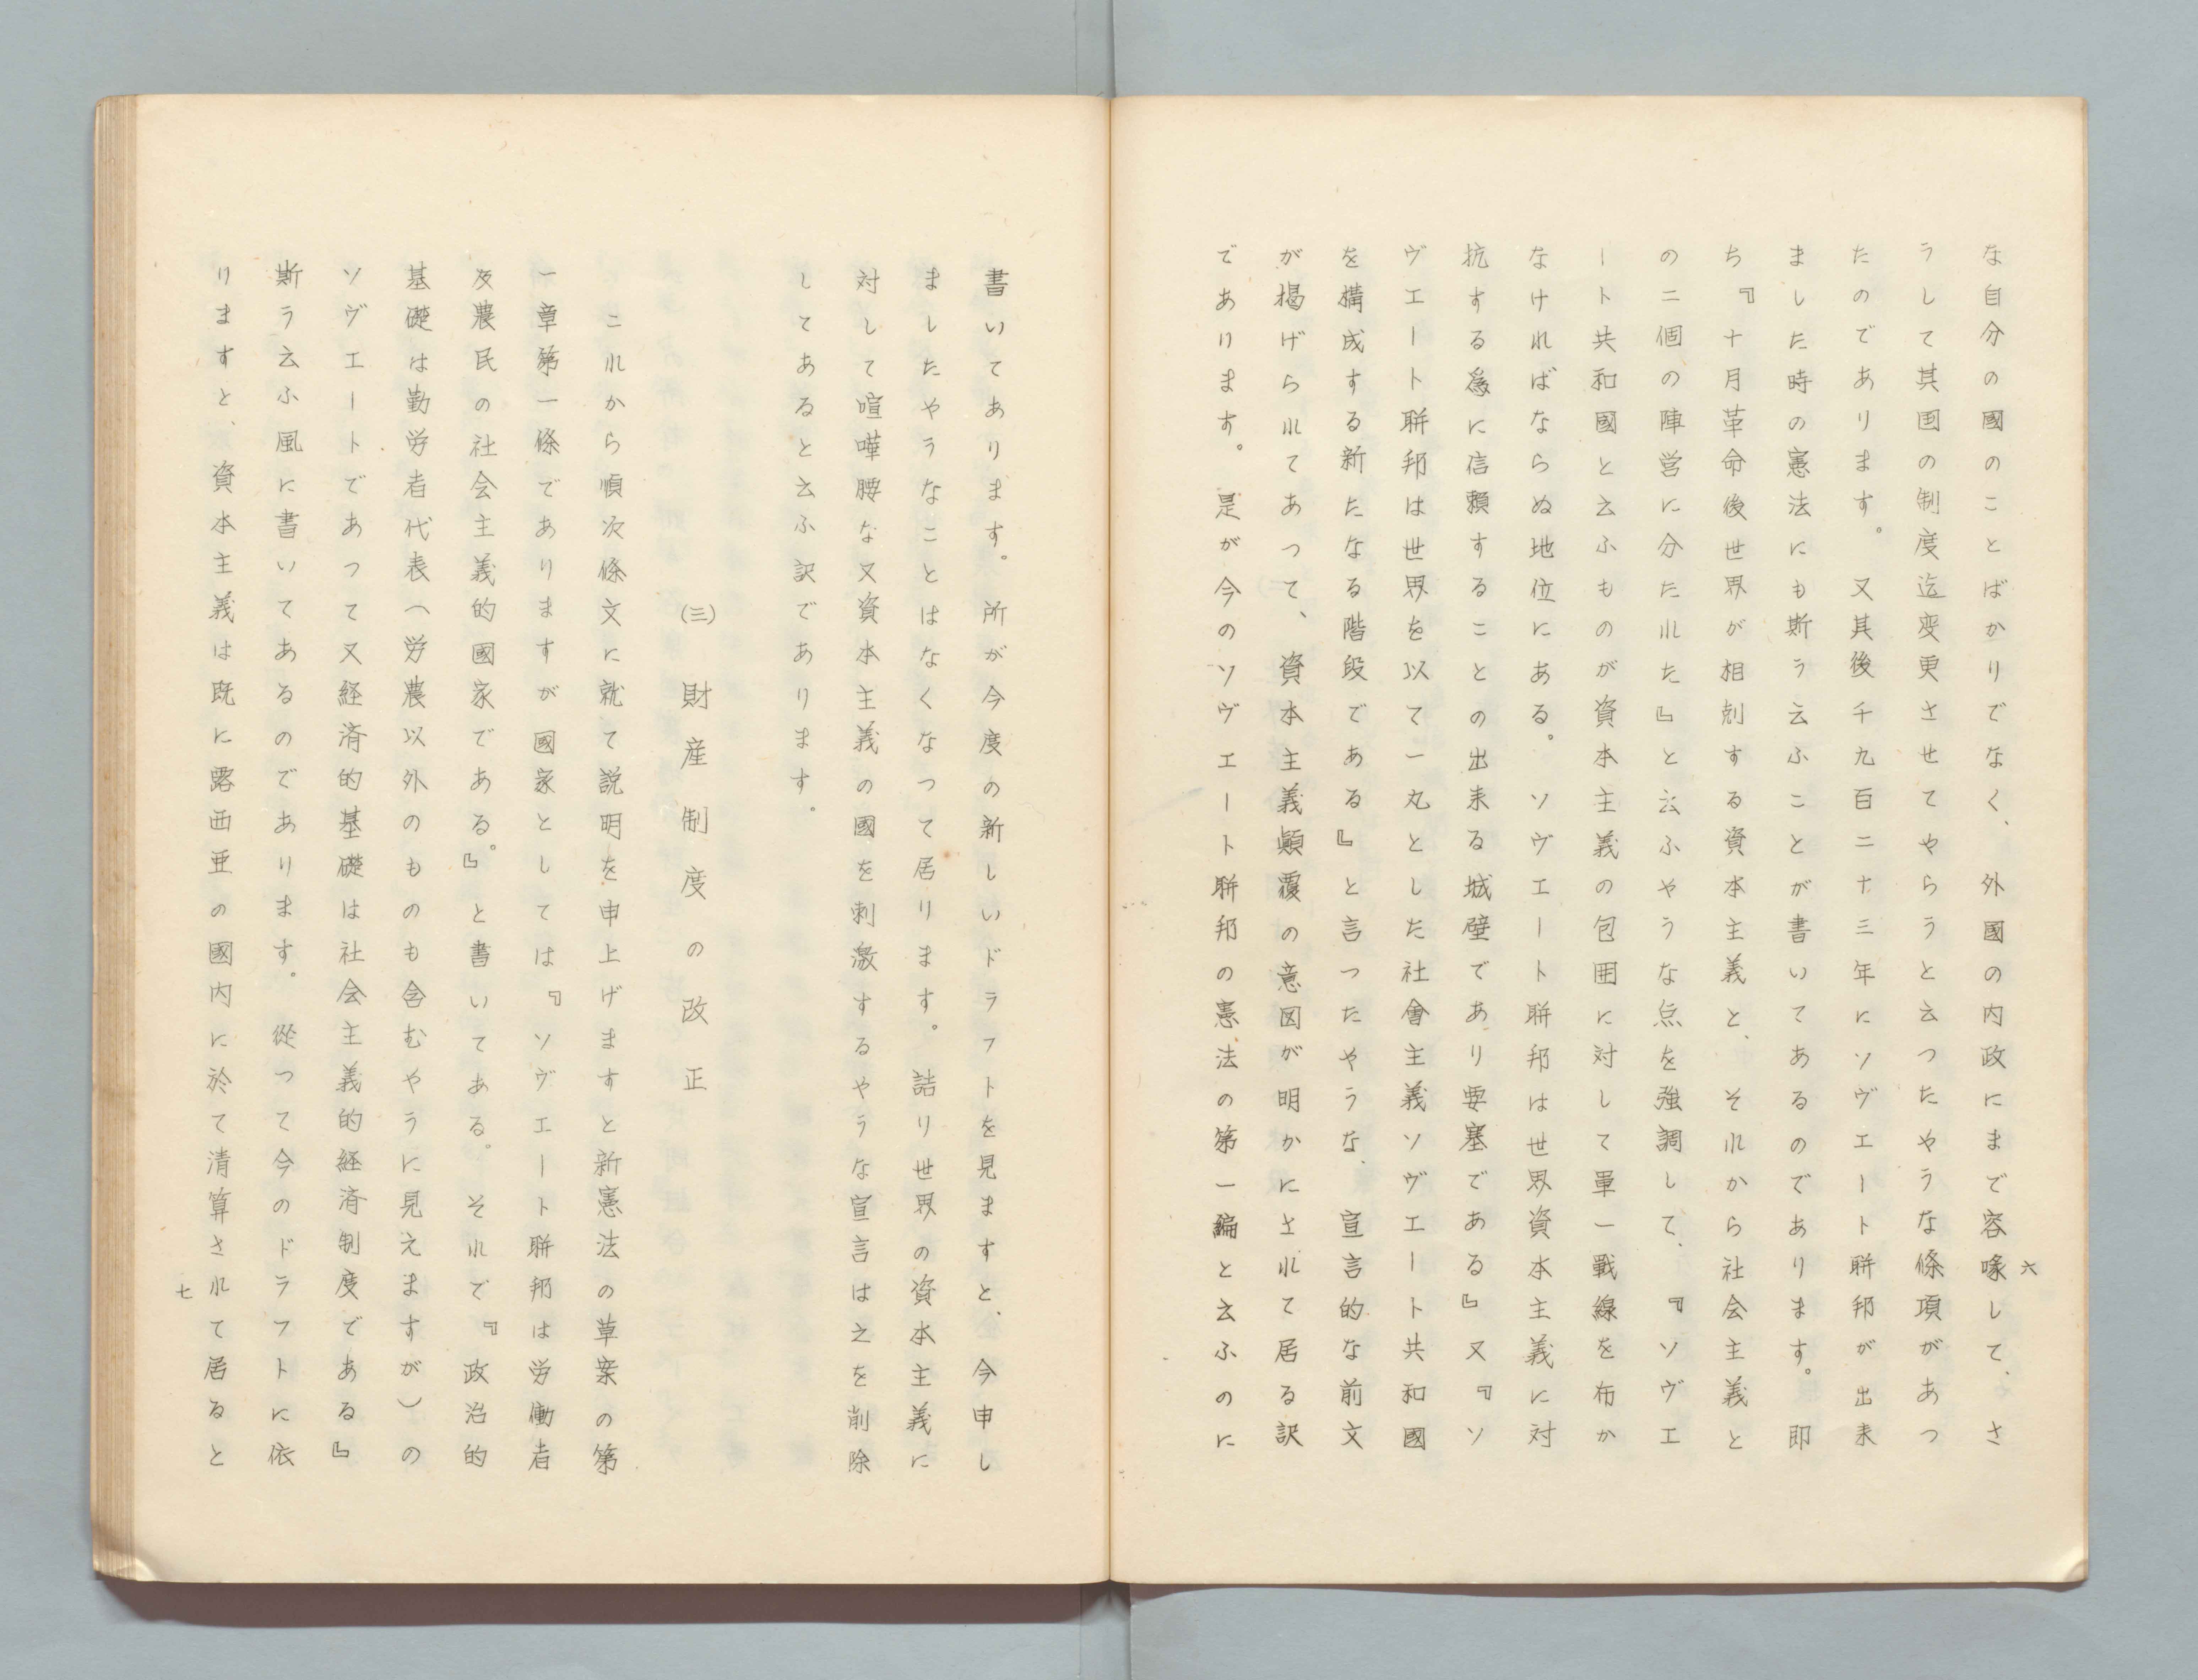 な自分の國のことばかりでなく、外國の内政にまで容喙して、さ
うして其国の制度迄変更させてやらうと云つたやうな條項があつ
たのであります。又其後千九百二十三年にソヴエート聯邦が出来
ました時の憲法にも斯う云ふことが書いてあるのであります。即
ち『十月革命後世界が相剋する資本主義と、それから社会主義と
の二個の陣営に分たれた』と云ふやうな点を強調して、『ソヴエ
ート共和國と云ふものが資本主義の包囲に対して単一戰線を布か
なければならぬ地位にある。ソヴエート聯邦は世界資本主義に対
抗する為に信頼することの出来る城壁であり要塞である』又『ソ
ヴエート聯邦は世界を以て一丸とした社會主義ソヴエート共和國
を構成する新たなる階段である』と言つたやうな、宣言的な前文
が掲げられてあつて、資本主義顚覆の意図が明かにされて居る訳
であります。是が今のソヴエート聯邦の憲法の第一編と云ふのに
六
書いてあります。所が今度の新しいドラフトを見ますと、今申し
ましたやうなことはなくなつて居ります。詰り世界の資本主義に
対して喧嘩腰な又資本主義の國を刺激するやうな宣言は之を削除
してあると云ふ訳であります。
(三) 財産制度の改正
これから順次條文に就て説明を申上げますと新憲法の草案の第
一章第一條でありますが國家としては『ソヴエート聯邦は労働者
及農民の社会主義的國家である。』と書いてある。それで『政治的
基礎は勤労者代表(労農以外のものも含むやうに見えますが)の
ソヴエートであつて又経済的基礎は社会主義的経済制度である』
斯う云ふ風に書いてあるのであります。從つて今のドラフトに依
りますと、資本主義は既に露西亜の國内に於て清算されて居ると
七